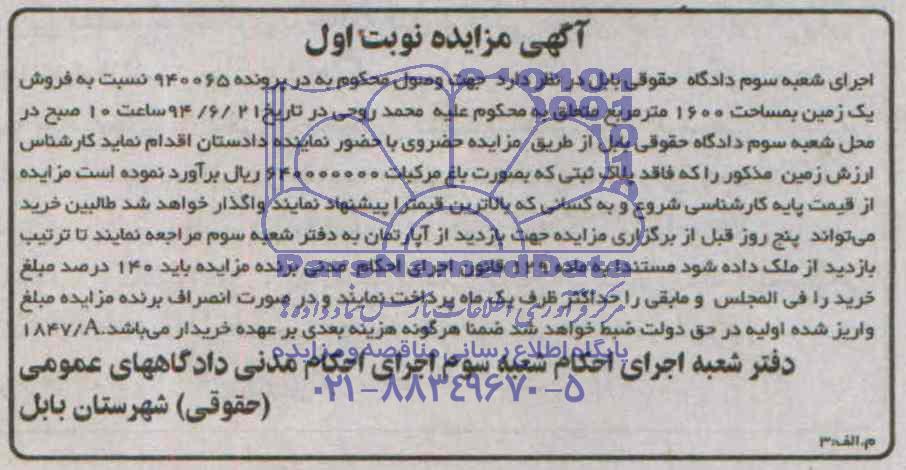 آگهی مزایده نوبت اول
اجرای شعبه سوم دادگاه حقوقی بابل در نظر دارد جهت وصول محکوم به در پرونده ۹۴۰۰۶۵ نسبت به فروش
یک زمین بمساحت ۱۶۰۰ مترمربع متعلق به محکوم علیه محمد روحی در تاریخ ۹۴/۶/۲۱ ساعت ۱۰ صبح در
محل شعبه سوم دادگاه حقوقی بابل از طریق مزایده حضروی با حضور نماینده دادستان اقدام نماید کارشناس
ارزش زمین مذکور را که فاقد پلاک ثبتی که بصورت باغ مرکبات ۶۴۰۰۰۰۰۰۰۰ ریال برآورد نموده است مزایده
از قیمت پایه کارشناسی شروع و به کسانی که بالاترین قیمت را پیشنهاد نمایند واگذار خواهد شد طالبین خرید
می‌تواند پنج روز قبل از برگزاری مزایده جهت بازدید از آپارتمان به دفتر شعبه سوم مراجعه نمایند تا ترتیب
بازدید از ملک داده شود مستندا به ماده ۱۲۹ قانون اجرای احکام مدنی برنده مزایده باید ۱۴۰ درصد مبلغ
خرید را فی المجلس و مابقی را حداکثر ظرف یک ماه پرداخت نمایند و در صورت انصراف برنده مزایده مبلغ
واریز شده اولیه در حق دولت ضبط خواهد شد ضمنا هرگونه هزینه بعدی بر عهده خریدار می‌باشد. ۱۸۴۷/A
دفتر شعبه اجرای احکام شعبه سوم اجرای احکام مدنی دادگاههای عمومی
(حقوقی) شهرستان بابل
م.الف:۳
ParsNamadData
مرکز فرآوری اطلاعات پارس نماد داده‌ها
پایگاه اطلاع رسانی مناقصه و مزایده
۰۲۱-۸۸۳۴۹۶۷۰-۵